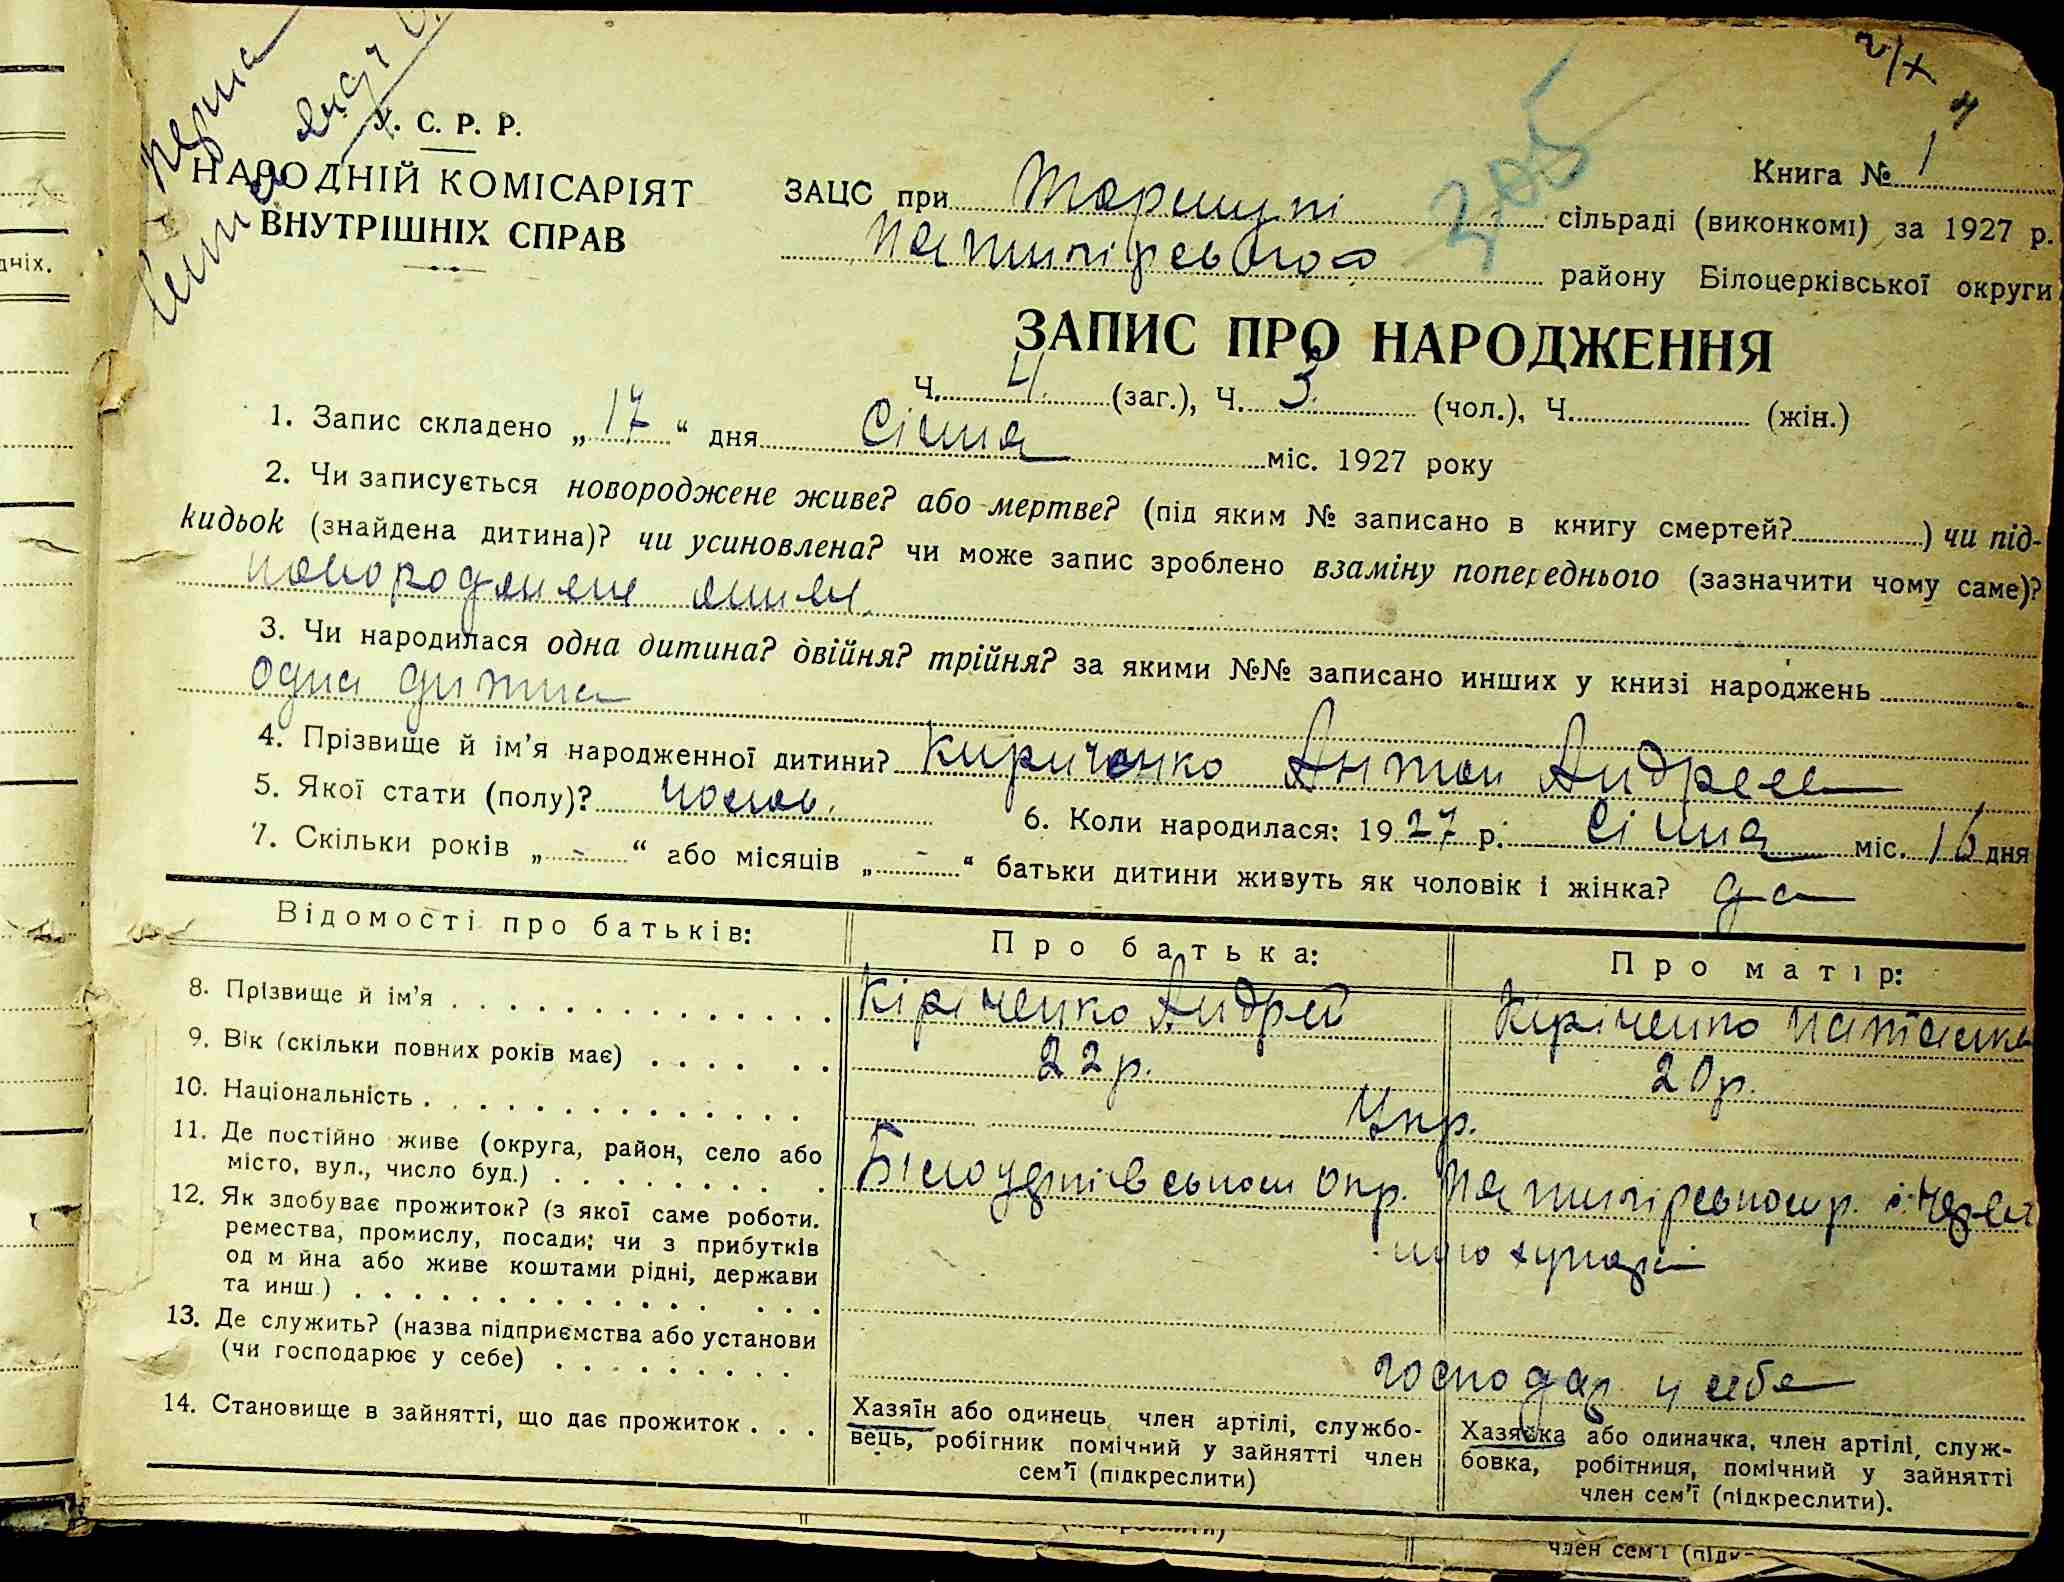 У. С. Р. Р.
НАРОДНІЙ КОМІСАРІЯТ
ВНУТРІШНІХ СПРАВ
305
Книга № 1
ЗАЦС при сільраді (виконкомі) за 1927 р.
Пятигірського району Білоцерківської округи
ЗАПИС ПРО НАРОДЖЕННЯ
Ч. 4 (заг.), Ч. 3 (чол.), Ч. (жін.)
1. Запис складено „ 17 “ дня Січня міс. 1927 року
2. Чи записується новороджене живе? або мертве? (під яким № записано в книгу смертей? ) чи під-
кидьок (знайдена дитина)? чи усиновлена? чи може запис зроблено взаміну попереднього (зазначити чому саме)?
новороджене живе
3. Чи народилася одна дитина? двійня? трійня? за якими №№ записано инших у книзі народжень
одна дитина
4. Прізвище й ім’я народженної дитини? Кириченко Антон Андреев
5. Якої стати (полу)? чолов. 6. Коли народилася: 1927 р. Січня міс. 16 дня
7. Скільки років „ - “ або місяців „ - “ батьки дитини живуть як чоловік і жінка? да
Відомості про батьків: Про батька: Про матір:
8. Прізвище й ім’я Кіріченко Андрей Кіріченко Наталка
9. Вік (скільки повних років має) 22 р. 20 р.
10. Національність Укр.
11. Де постійно живе (округа, район, село або
місто, вул., число буд.) Білоцерківськой окр. Пятигірськой р.
12. Як здобуває прожиток? (з якої саме роботи.
ремества, промислу, посади; чи з прибутків
од м йна або живе коштами рідні, держави
та инш.)
13. Де служить? (назва підприємства або установи
(чи господарює у себе) господар. у себе
14. Становище в зайнятті, що дає прожиток
Хазяїн або одинець, член артілі, службо-
вець, робітник помічний у зайнятті член
сем’ї (підкреслити)
Хазяйка або одиначка, член артілі, служ-
бовка, робітниця, помічний у зайнятті
член сем’ї (підкреслити).